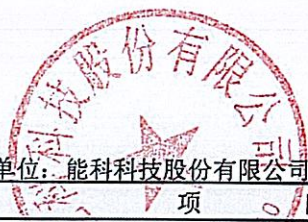 科科技股份有限公司
单位：能科科技股份有限公司
项